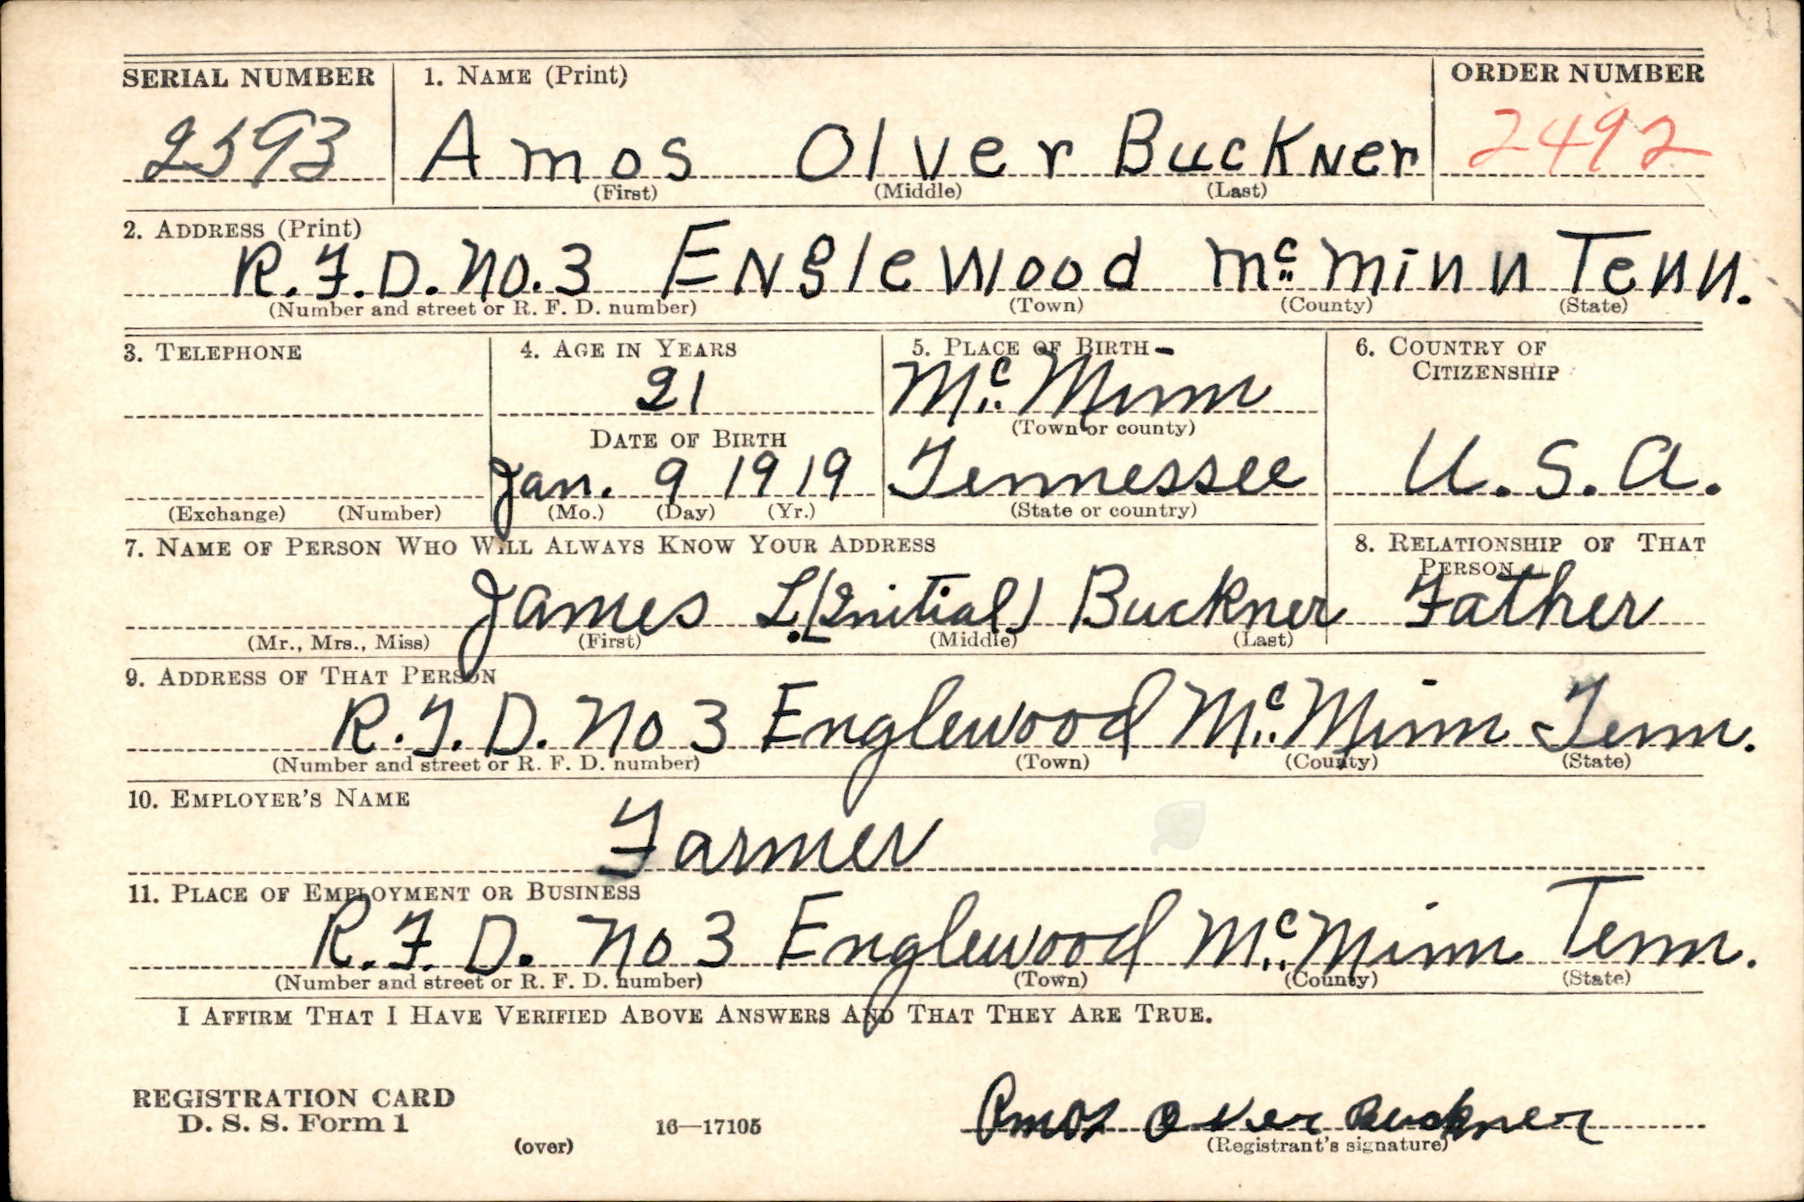 SERIAL NUMBER 1. NAME (Print) ORDER NUMBER
2593 Amos Olver Buckner 2492
(First) (Middle) (Last)
2. ADDRESS (Print)
R.F.D. No. 3 Englewood Mc Minn Tenn.
(Number and street or R. F. D. number) (Town) (County) (State)
3. TELEPHONE 4. AGE IN YEARS 5. PLACE OF BIRTH 6. COUNTRY OF
CITIZENSHIP
21 Mc Minn
(Town or county)
DATE OF BIRTH
Jan. 9 1919 Tennessee U.S.A.
(Exchange) (Number) (Mo.) (Day) (Yr.) (State or country)
7. NAME OF PERSON WHO WILL ALWAYS KNOW YOUR ADDRESS 8. RELATIONSHIP OF THAT
PERSON
James L. (Initial) Buckner Father
(Mr., Mrs., Miss) (First) (Middle) (Last)
9. ADDRESS OF THAT PERSON
R.F.D. No 3 Englewood Mc Minn Tenn.
(Number and street or R. F. D. number) (Town) (County) (State)
10. EMPLOYER'S NAME
Farmer
11. PLACE OF EMPLOYMENT OR BUSINESS
R.F.D. No 3 Englewood Mc Minn Tenn.
(Number and street or R. F. D. number) (Town) (County) (State)
I AFFIRM THAT I HAVE VERIFIED ABOVE ANSWERS AND THAT THEY ARE TRUE.
REGISTRATION CARD
D. S. S. Form 1 16—17105 Amos Olver Buckner
(over) (Registrant's signature)